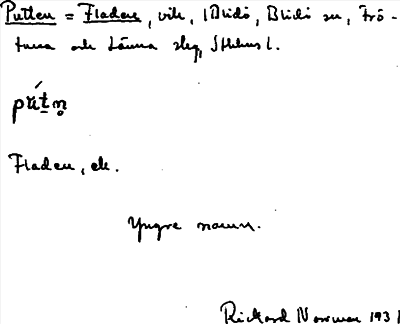 Putten = Fladen, vik, i Blidö, Blidö sn, Frö-
tuna och Länna skg, Sthlms l.
pút̠n̥
Fladen, ek.
Yngre namn.
Rickard Norrman 193